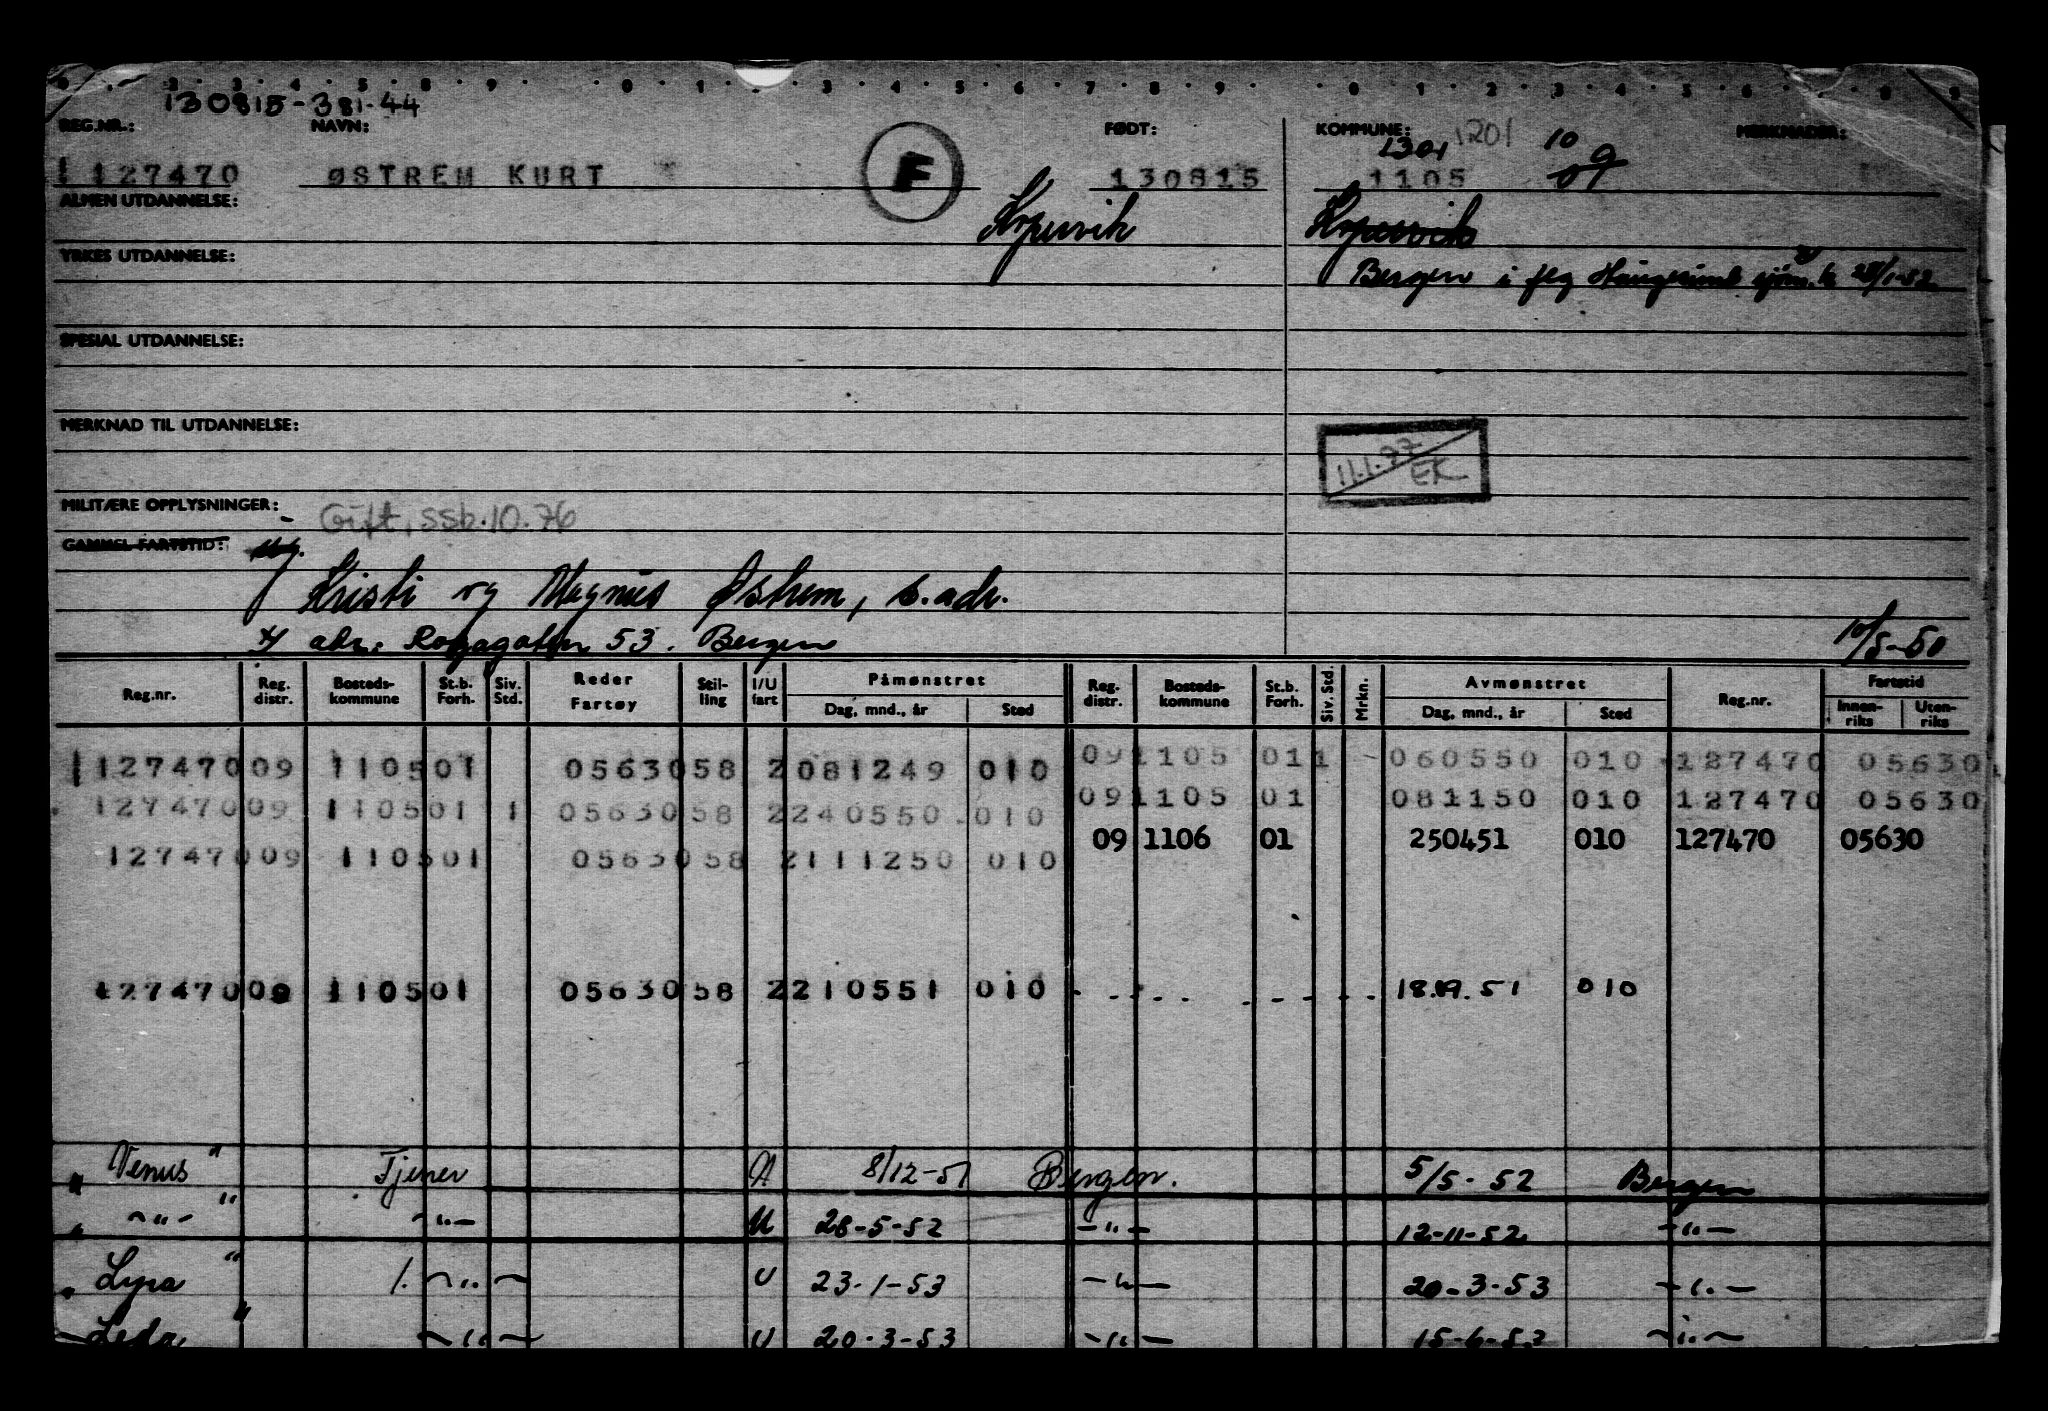 130815-381-44
REG.NR.: NAVN: FØDT: KOMMUNE: 1201 10 MERKNADER:
1301 09
127470 ØSTREM KURT F 130815 1105
ALMEN UTDANNELSE: Kopervik Kopervik
YRKES UTDANNELSE: Bergen i flg Haugesund sjøm.k 28/1-52.
SPESIAL UTDANNELSE:
MERKNAD TIL UTDANNELSE:
11.1.77 EK
MILITÆRE OPPLYSNINGER: Gift, ssb.10.76
GAMMEL FARTSTID:
Kristi og Magnus Østrem, s.adr.
x/ adr: Rogagaten 53. Bergen 10/5-50
Reg.nr. Reg. distr. Bosteds- kommune St.b. Forh. Siv. Std. Reder Fartøy Stil- ling I/U fart Påmønstret Dag, mnd., år Sted Reg. distr. Bosteds- kommune St.b. Forh. Siv. Std. Mrkn. Avmønstret Dag, mnd., år Sted Reg.nr. Fartstid Innen- riks Uten- riks
127470 09 1105 01 05630 58 2 081249 010 09 1105 01 1 - 060550 010 127470 05630
127470 09 1105 01 1 05630 58 2 240550 010 09 1105 01 081150 010 127470 05630
127470 09 1105 01 05630 58 2 111250 010 09 1106 01 250451 010 127470 05630
127470 09 1105 01 05630 58 2 210551 010 18.09.51 010
"Venus" Tjener U 8/12-51 Bergen. 5/5-52 Bergen
" -"- " -"- U 28-5-52 -"- 12-11-52 -"-
"Lyra" 1. -"- U 23-1-53 -"- 20-3-53 -"-
"Leda" -"- U 20-3-53 -"- 15-6-53 -"-